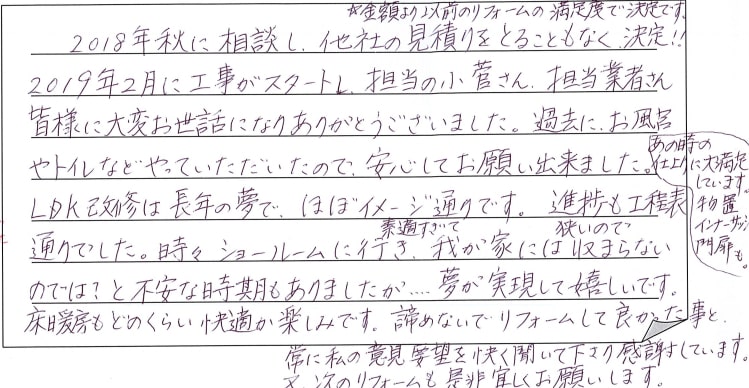 ☆金額より以前のリフォームの満足度で決定です。
2018年秋に相談し、他社の見積りをとることもなく決定!!
2019年2月に工事がスタートし、担当の小菅さん、担当業者さん
皆様に大変お世話になりありがとうございました。過去に、お風呂
やトイレなどやっていただいたので、安心してお願い出来ました。
あの時の
仕上りに大満足
しています。
物置
インナーサッシ
門扉も。
LDK改修は長年の夢で、ほぼイメージ通りです。進捗も工程表
通りでした。時々ショールームに行き、我が家には収まらない
素適すぎて
狭いので
のでは?と不安な時期もありましたが....夢が実現して嬉しいです。
床暖房もどのくらい快適か楽しみです。諦めないでリフォームして良かった事と、
常に私の意見要望を快く聞いて下さり感謝しています。
又、次のリフォームも是非宜しくお願いします。